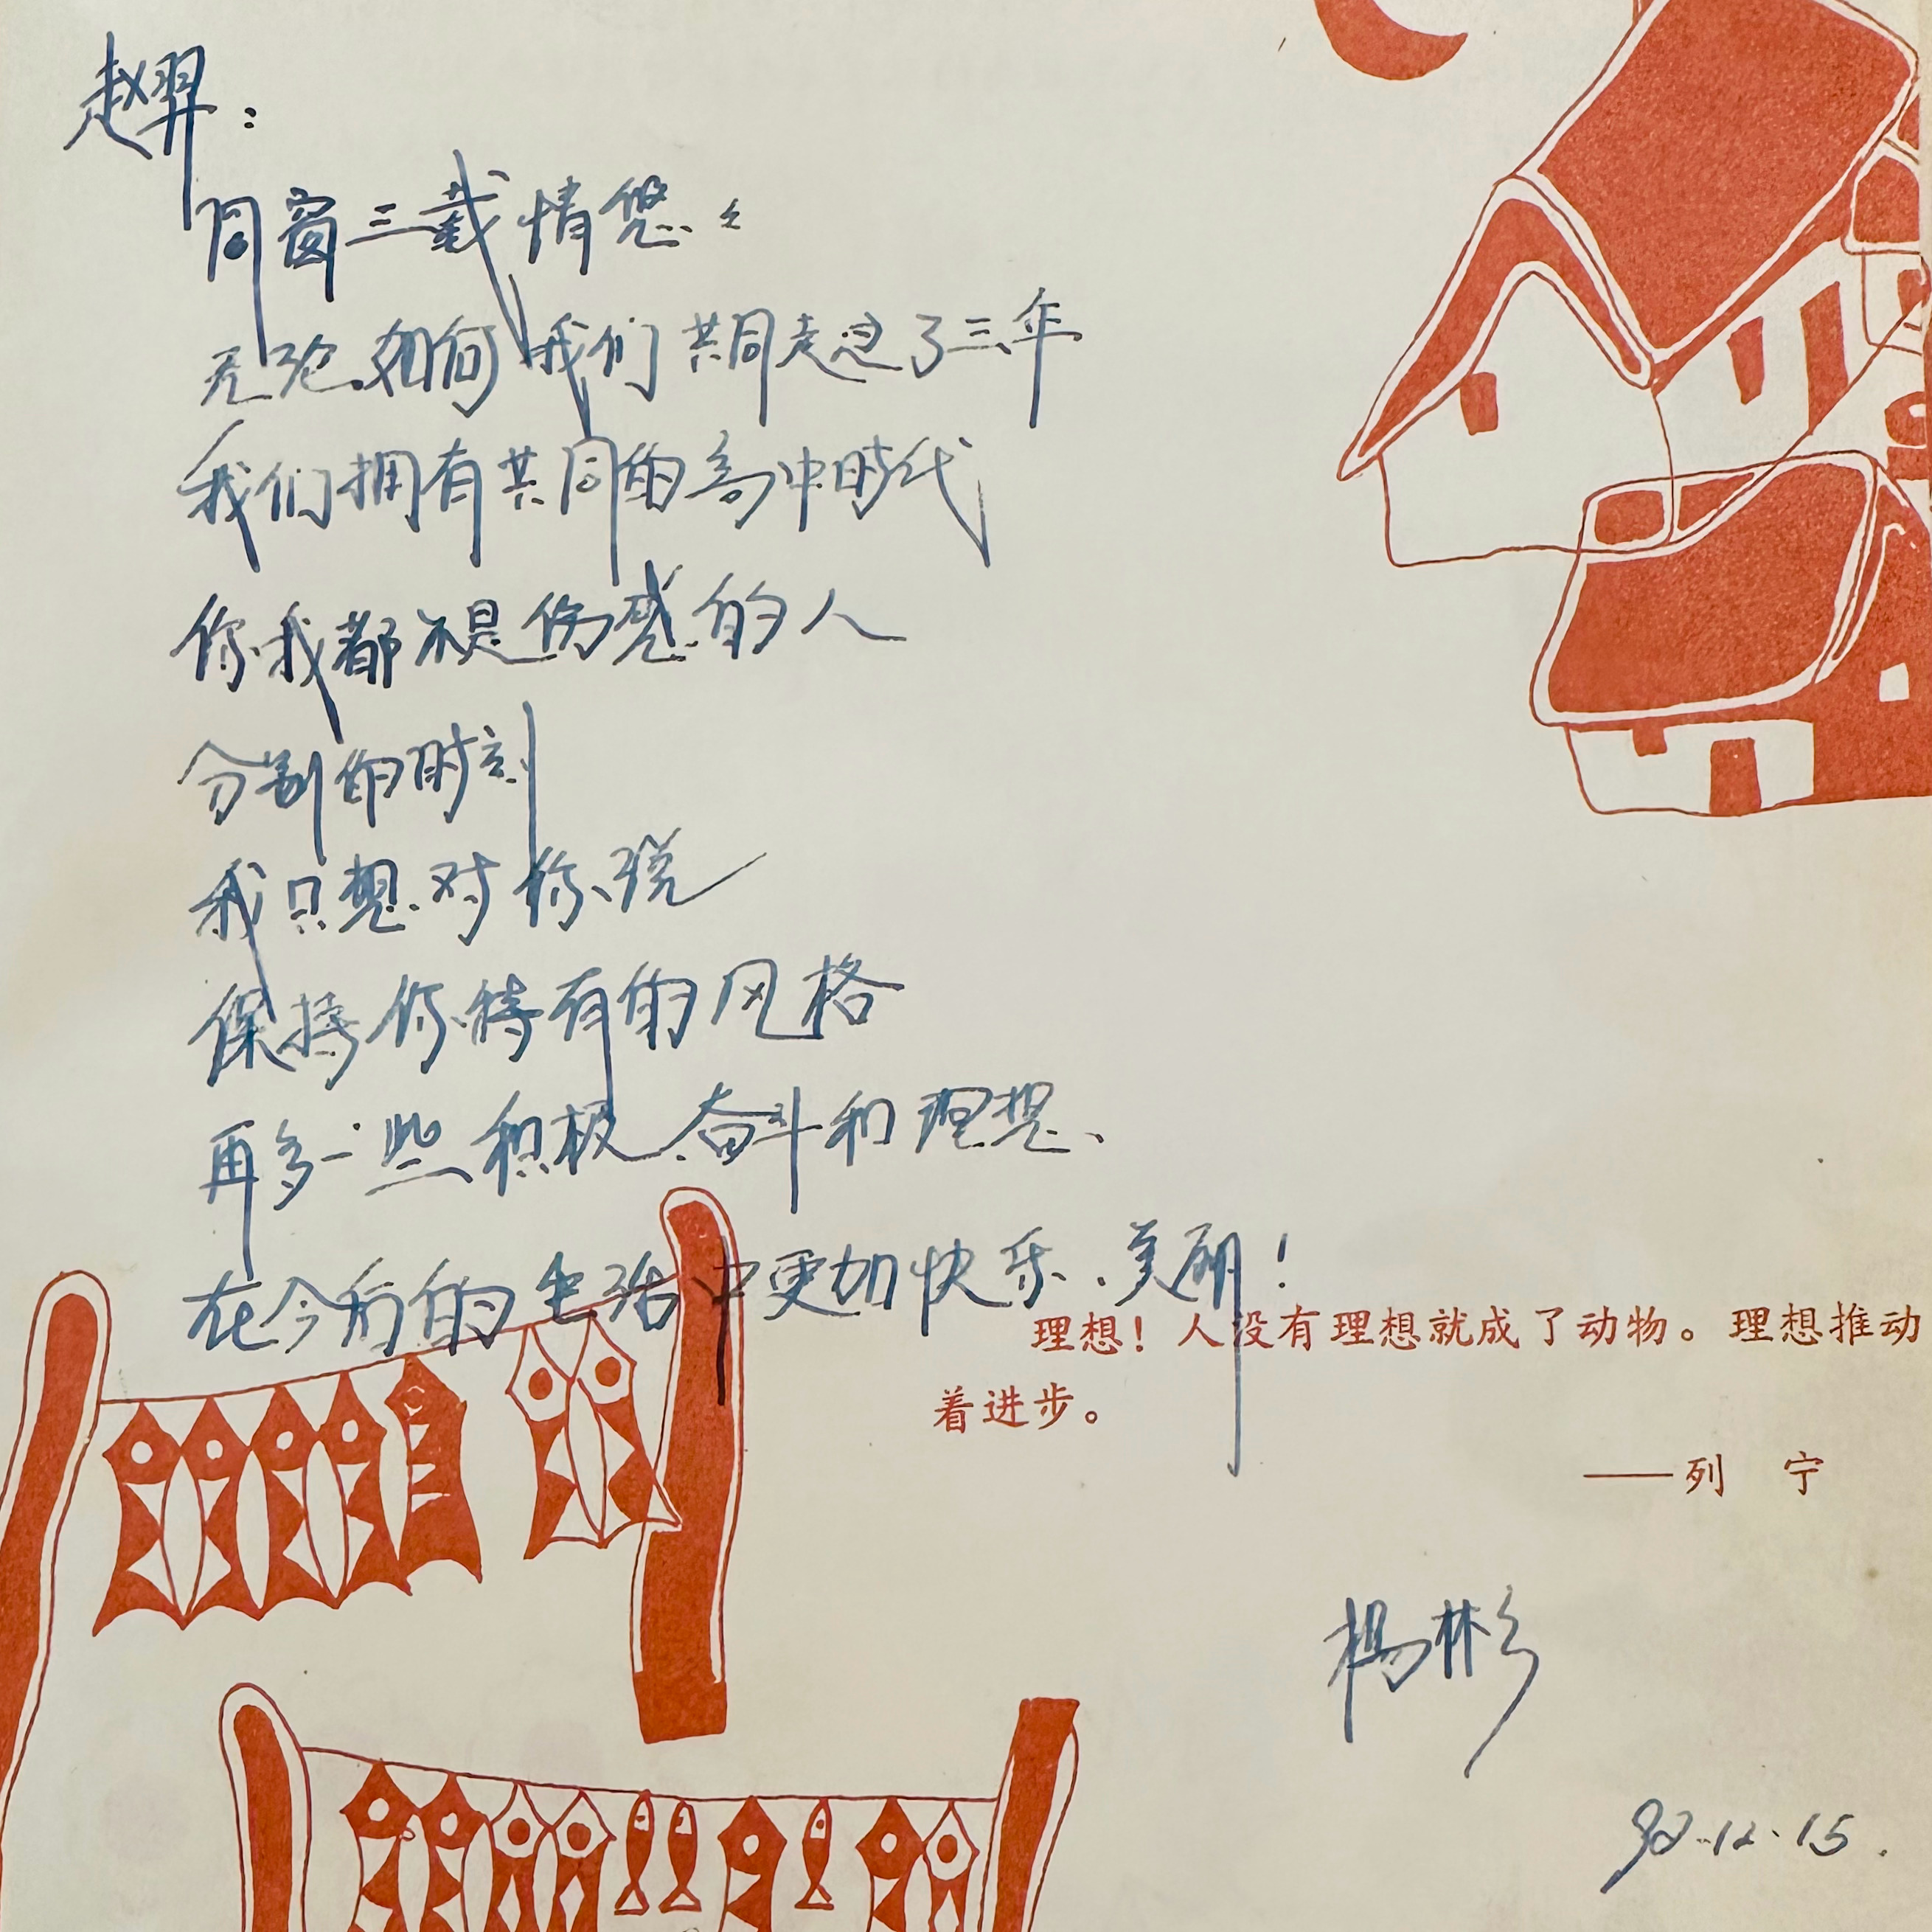 赵羿：
同窗三载情悠々
无论如何 我们共同走过了三年
我们拥有共同的高中时代
你我都不是伤感的人
分别的时刻
我只想对你说
保持你特有的风格
再多一些积极、奋斗和理想、
在今后的生活中更加快乐、美丽！
理想！人没有理想就成了动物。理想推动
着进步。
——列 宁
杨彬
90.12.15.